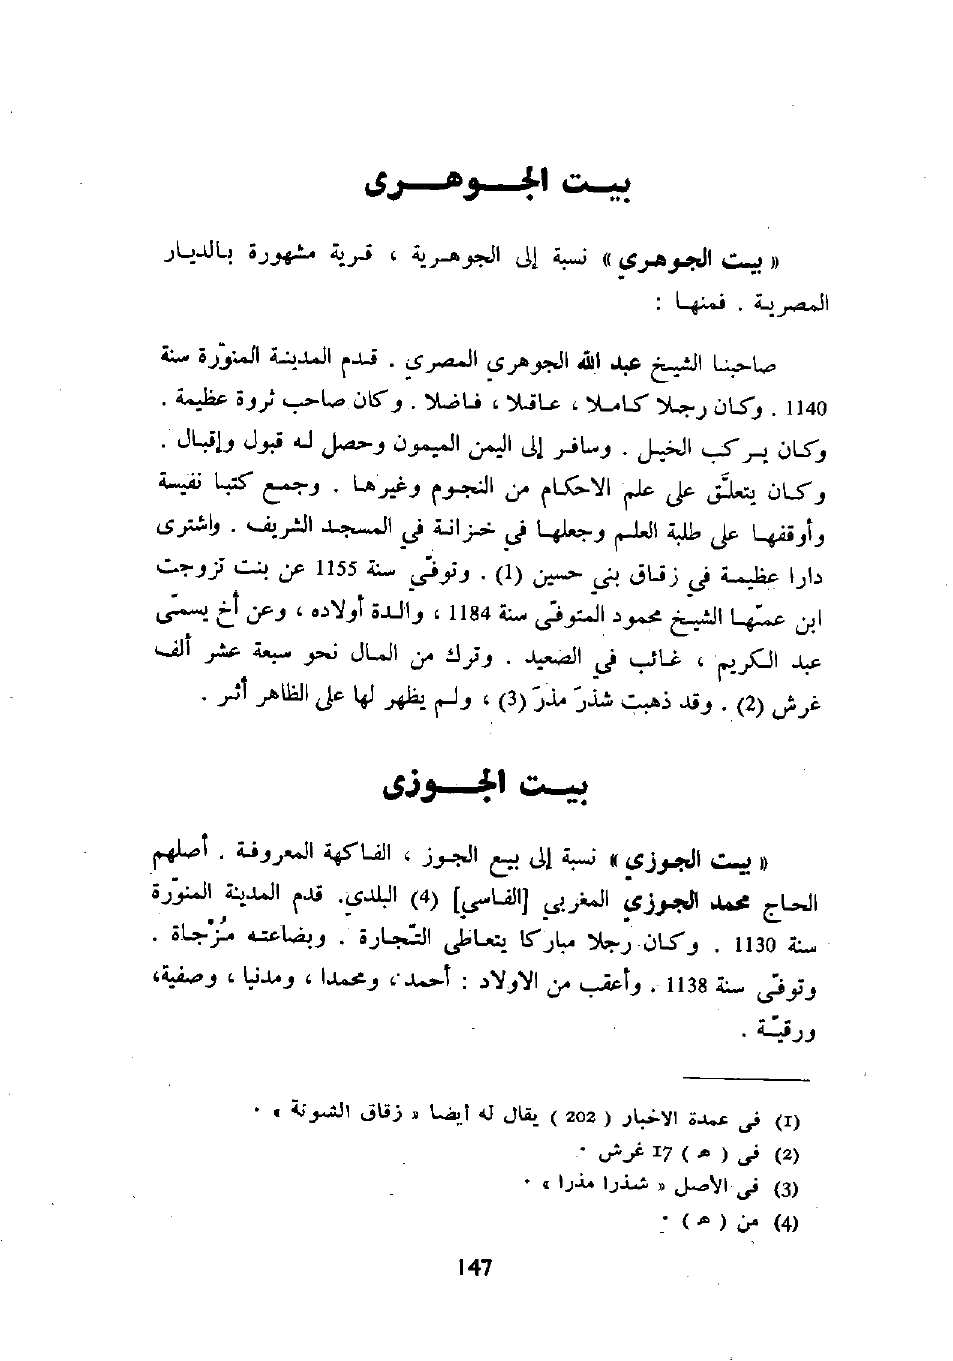 بيت الجوهرى
« بيت الجوهري » نسبة إلى الجوهرية ، قرية مشهورة بالديار
المصرية . فمنها :
صاحبنا الشيخ عبد الله الجوهري المصري . قدم المدينة المنوّرة سنة
1140 . وكان رجلا كاملا ، عاقلا ، فاضلا . وكان صاحب ثروة عظيمة .
وكان يركب الخيل . وسافر إلى اليمن الميمون وحصل له قبول وإقبال .
وكان يتعلّق على علم الاحكام من النجوم وغيرها . وجمع كتبا نفيسة
وأوقفها على طلبة العلم وجعلها في خزانة في المسجد الشريف . واشترى
دارا عظيمة في زقاق بني حسين (1) . وتوفّي سنة 1155 عن بنت تزوجت
ابن عمّها الشيخ محمود المتوفّى سنة 1184 ، والدة أولاده ، وعن أخ يسمّى
عبد الكريم ، غائب في الصعيد . وترك من المال نحو سبعة عشر ألف
غرش (2) . وقد ذهبت شذرَ مذرَ (3) ، ولم يظهر لها على الظاهر أثر .
بيت الجوزى
« بيت الجوزي » نسبة إلى بيع الجوز ، الفاكهة المعروفة . أصلهم
الحاج محمد الجوزي المغربي [الفاسي] (4) البلدي. قدم المدينة المنوّرة
سنة 1130 . وكان رجلا مباركا يتعاطى التّجارة . وبضاعته مُزْجاة .
وتوفّى سنة 1138 . وأعقب من الاولاد : أحمد ، ومحمدا ، ومدنيا ، وصفية،
ورقيّة .
(1) فى عمدة الاخبار ( 202 ) يقال له أيضا « زقاق الشونة » .
(2) فى ( هـ ) 17 غرش .
(3) فى الأصل « شذرا مذرا » .
(4) من ( هـ ) .
147